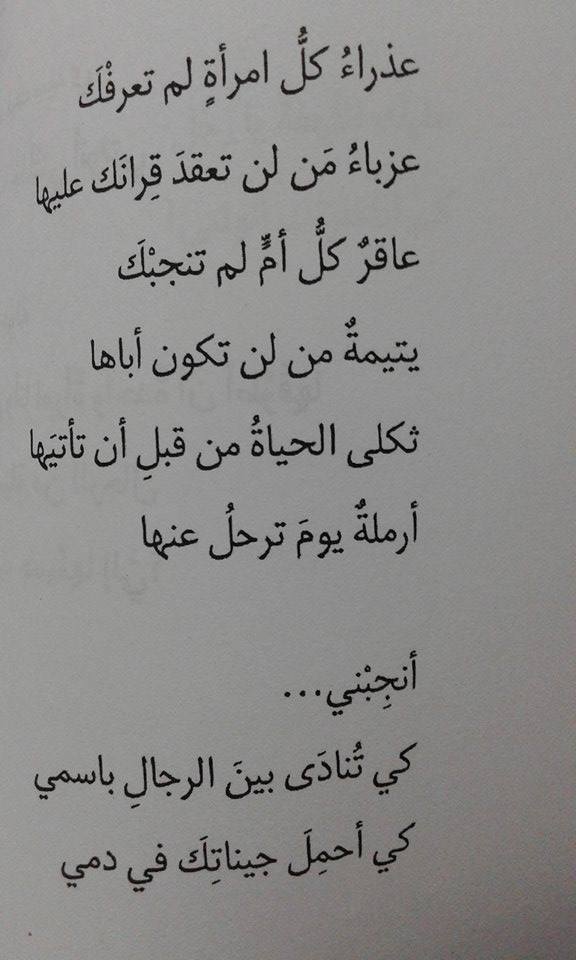 عذراءُ كلُّ امرأةٍ لم تعرفْكَ
عزباءُ مَن لن تعقدَ قِرانَك عليها
عاقرٌ كلُّ أمٍّ لم تنجبْكَ
يتيمةٌ من لن تكون أباها
ثكلى الحياةُ من قبلِ أن تأتيَها
أرملةٌ يومَ ترحلُ عنها
أنجِبْني...
كي تُنادَى بينَ الرجالِ باسمي
كي أحمِلَ جيناتِكَ في دمي